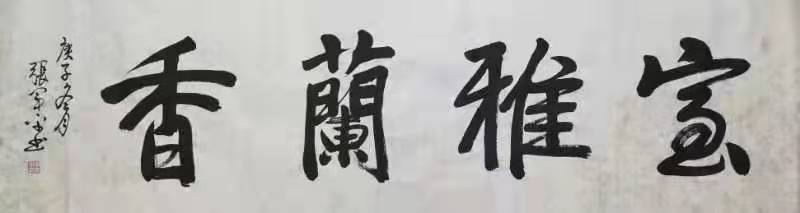 室雅蘭香
庚子冬月
張軍書